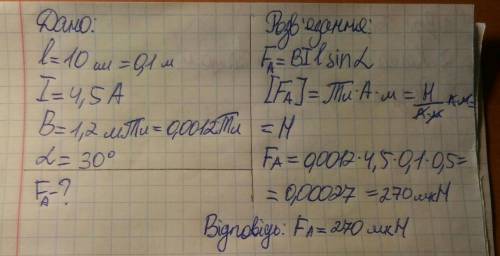 Дано:
l = 10 см = 0,1 м
I = 4,5 A
B = 1,2 мТл = 0,0012 Тл
α = 30°
F_A - ?
Розв'язання:
F_A = BIl sin α
[F_A] = Тл·А·м = Н/А·м А·м =
= Н
F_A = 0,0012·4,5·0,1·0,5 =
= 0,00027 = 270 мкН
Відповідь: F_A = 270 мкН